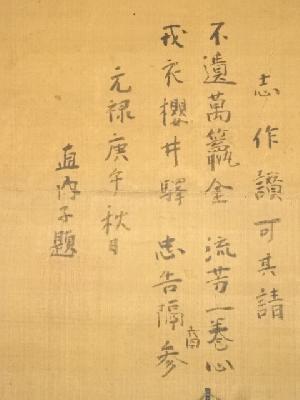 志作讃可其請
不遺萬籯金 流芳一巻心
戎衣櫻井驛 忠告隔参
元禄庚午秋日
直
子題